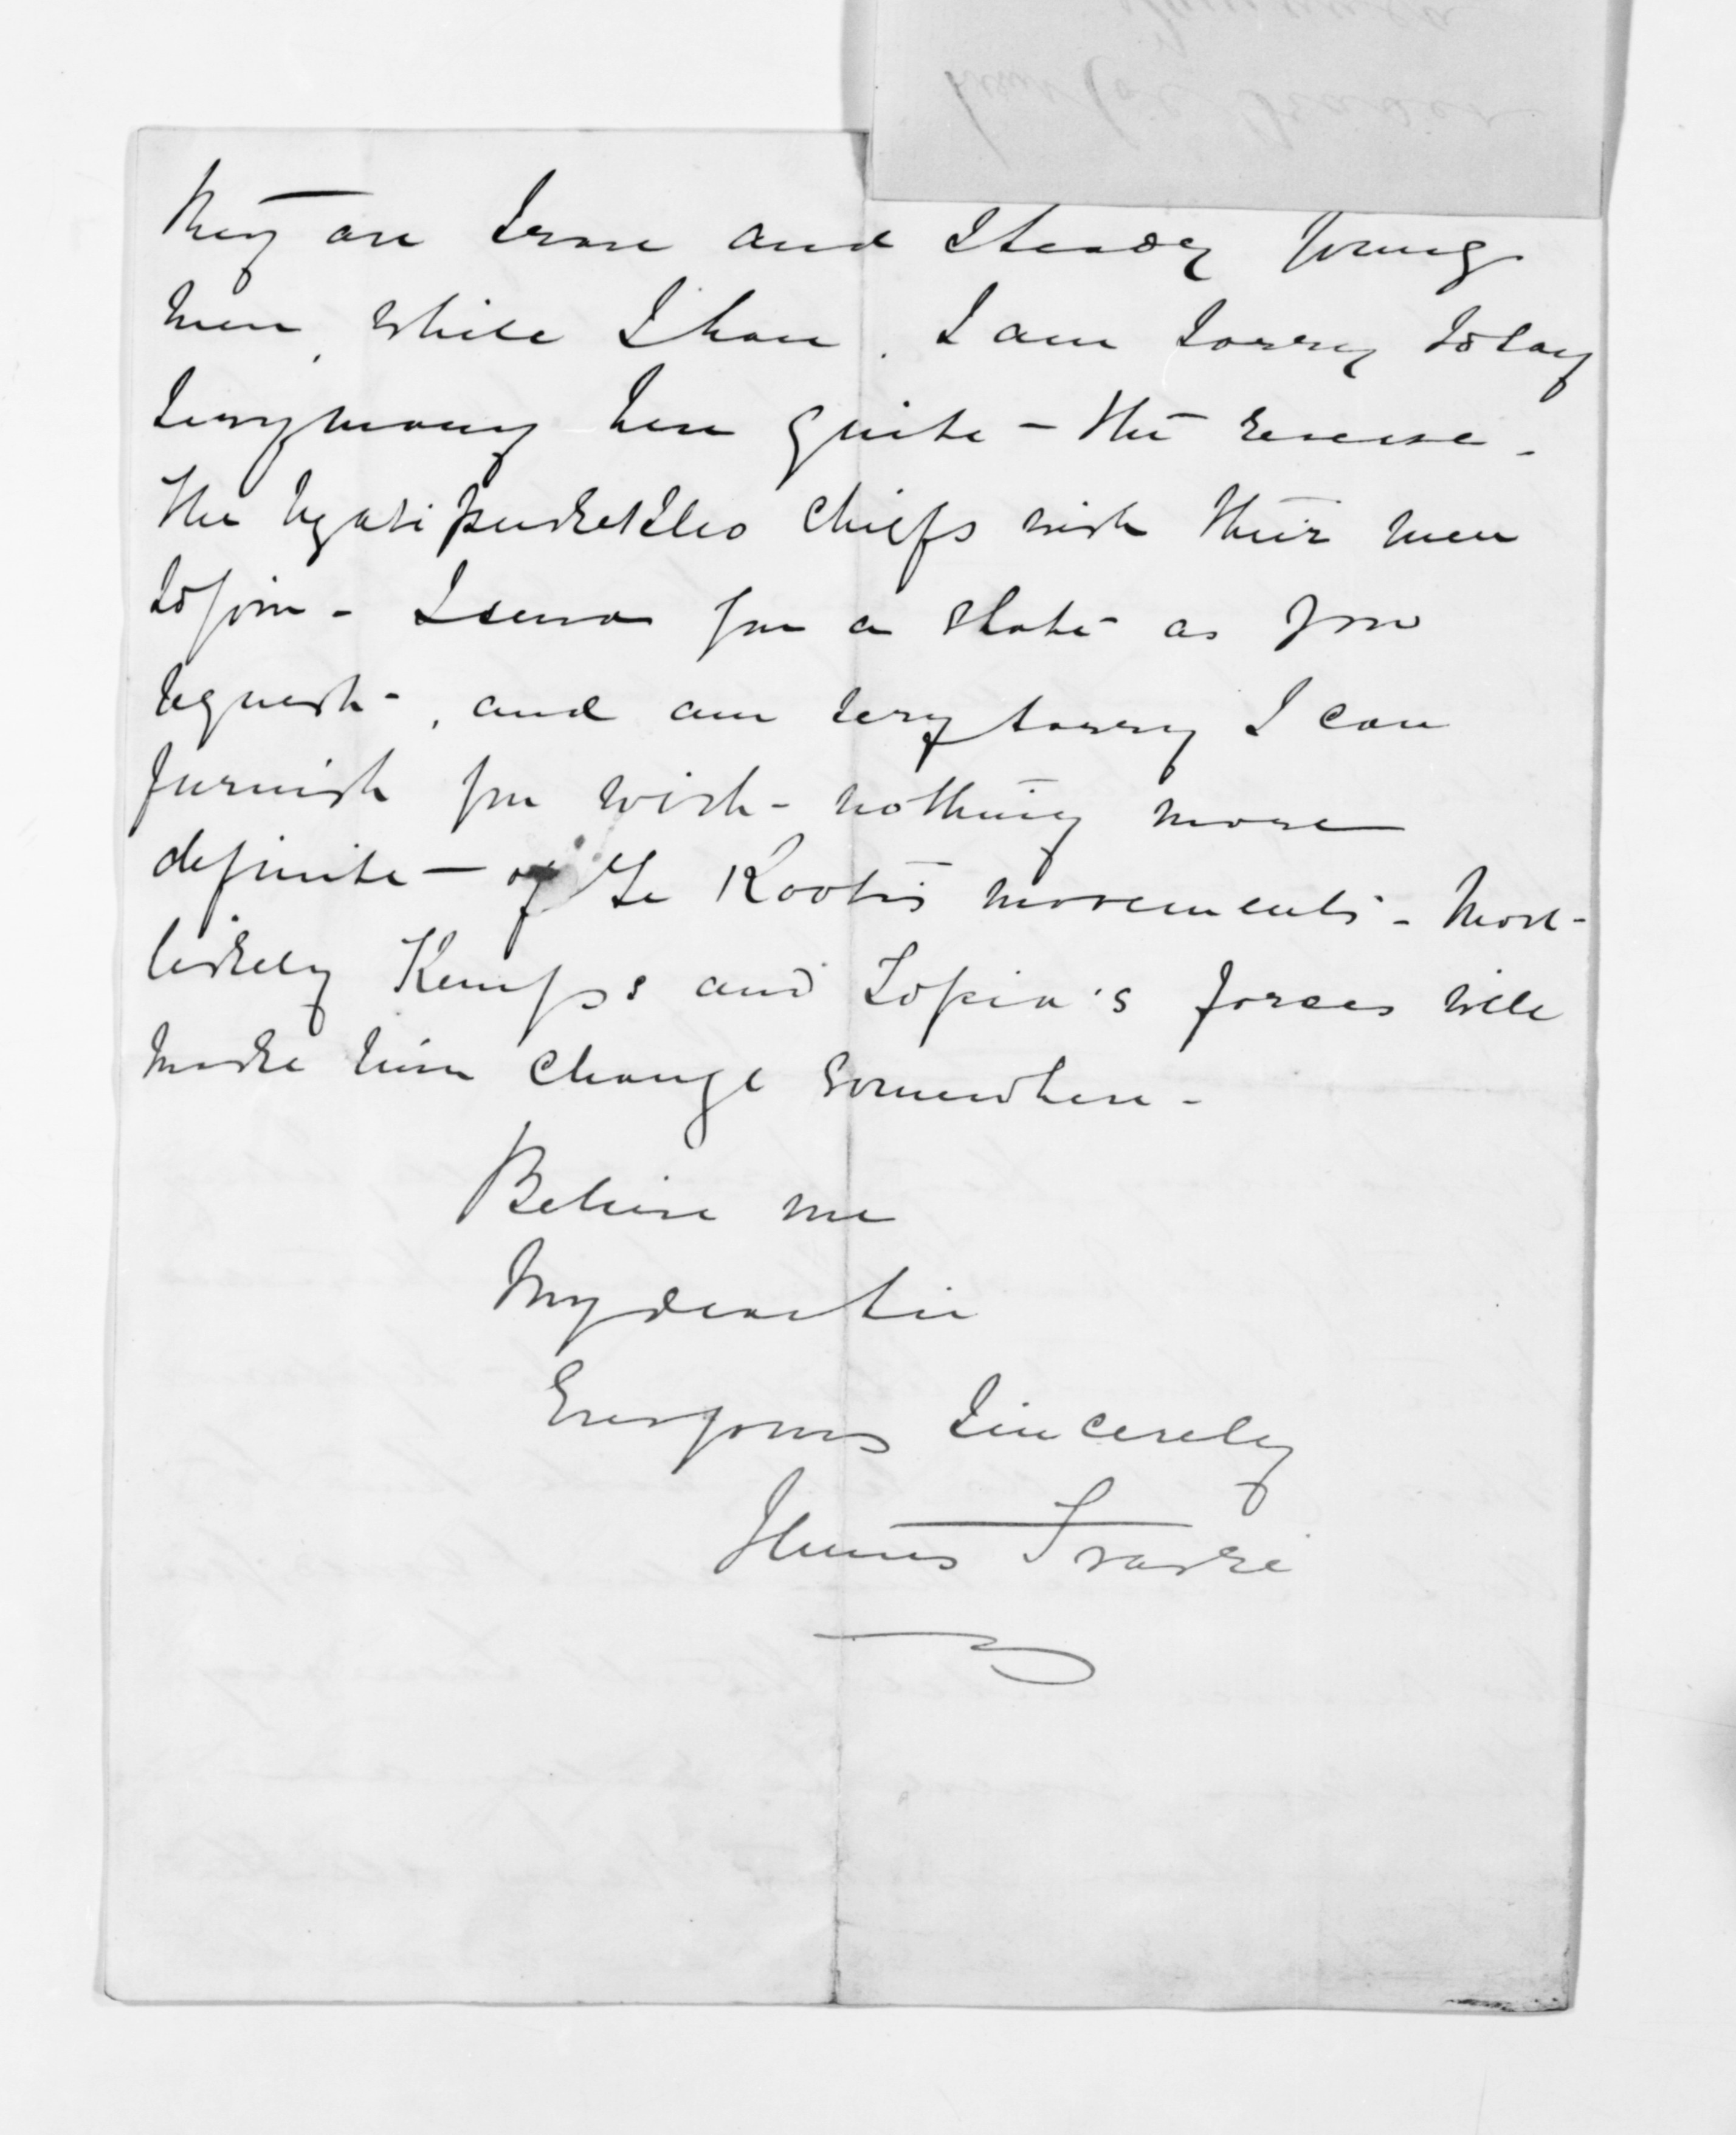 They are brave and steady young
men, while I have, I am sorry to say
very many here quite the reverse -
The Ngatipukeko chiefs wish their men
to join - I send you a state as you
request, and am very sorry I can
furnish you with nothing more
definite of Te Kooti's movements - Most
likely Kemp's and Topia's forces will
make him change somewhere -
Believe me
My dear Sir
Ever yours Sincerely